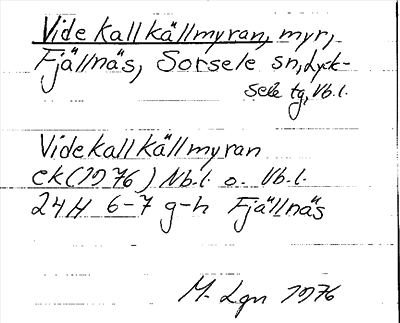 Videkallkällmyran, myr,
Fjällnäs, Sorsele sn, Lyck-
sele tg, Vb.l.
Videkallkällmyran
ek (1976) Nb.l. o. Vb.l.
24H 6-7 g-h Fjällnäs
M. Lgn 1976